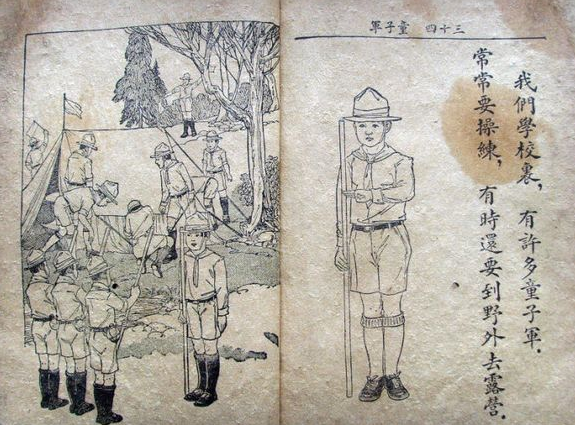 三十四 童子軍
我們學校裏，有許多童子軍．
常常要操練，有時還要到野外去露營．